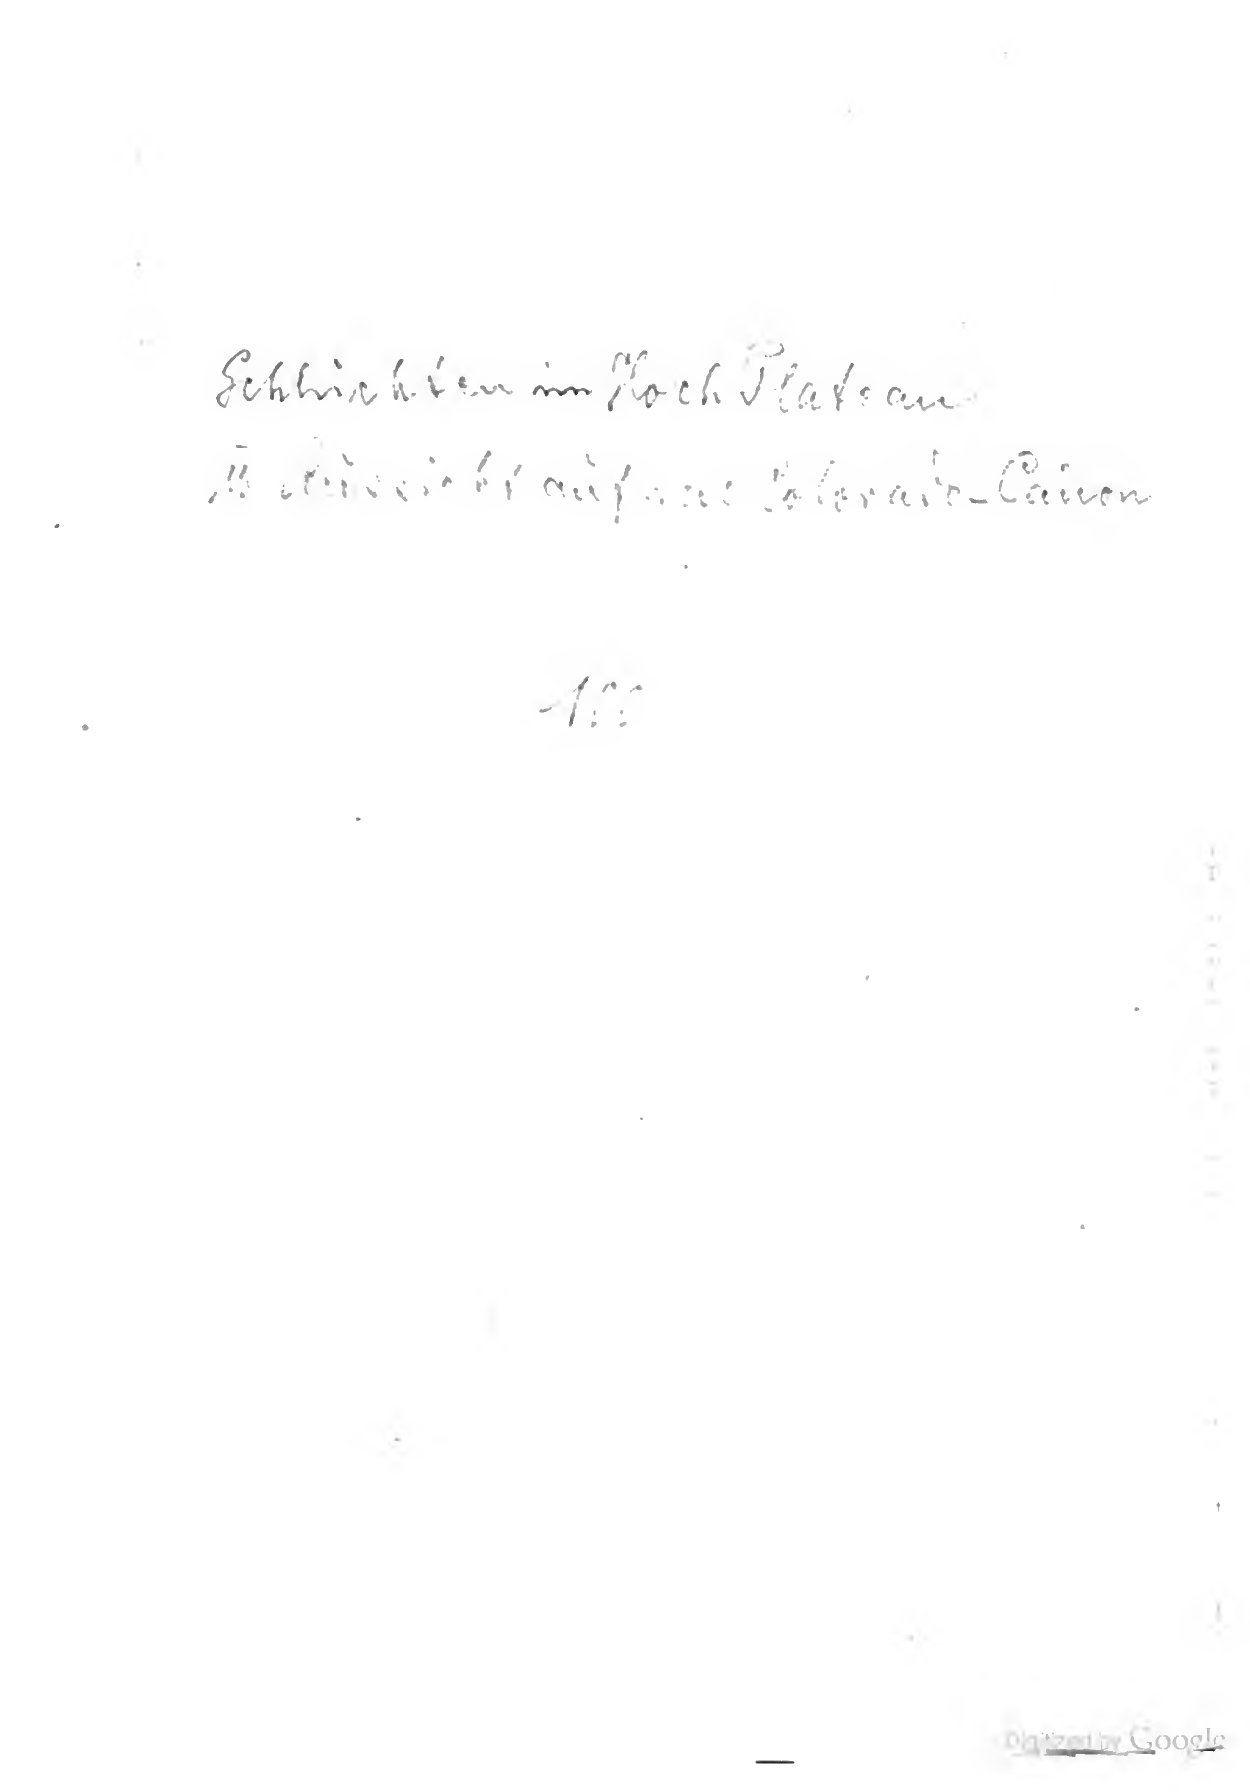 Schluchten im Hoch Plateau
Aussicht auf Colorado-Cañon
100
Digitized by Google